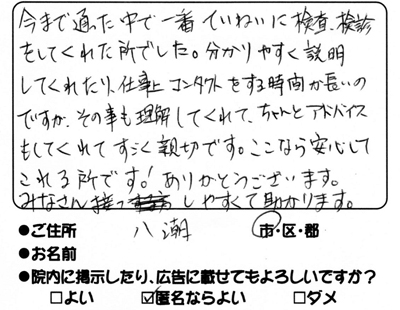 今まで通った中で一番ていねいに検査、検診
をしてくれた所でした。分かりやすく説明
してくれたり、仕事上コンタクトをする時間が長いの
ですが、その事も理解してくれて、ちゃんとアドバイス
もしてくれてすごく親切です。ここなら安心して
これる所です！ありがとうございます。
みなさん接っしやすくて助かります。
●ご住所 八潮 市・区・郡
●お名前
●院内に掲示したり、広告に載せてもよろしいですか？
□よい ☑匿名ならよい □ダメ